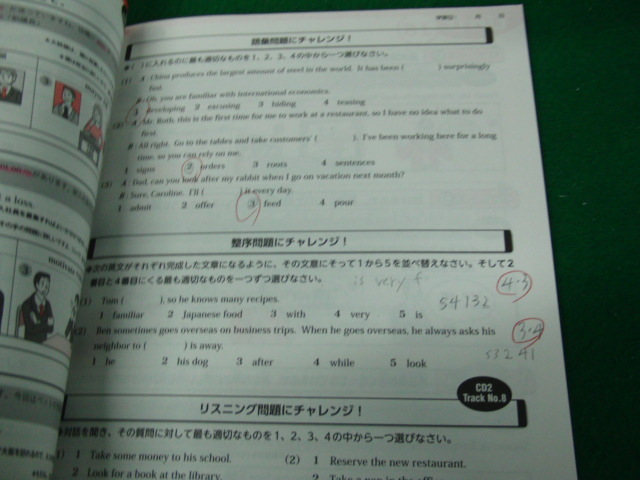 学習日 月 日
語彙問題にチャレンジ!
( )に入れるのに最も適切なものを1、2、3、4の中から一つ選びなさい。
(1) A: China produces the largest amount of steel in the world. It has been ( ) surprisingly
fast.
B: Oh, you are familiar with international economics.
1 developing 2 excusing 3 hiding 4 teasing
(2) A: Mr. Ruth, this is the first time for me to work at a restaurant, so I have no idea what to do
first.
B: All right. Go to the tables and take customers' ( ). I've been working here for a long
time, so you can rely on me.
1 signs 2 orders 3 roots 4 sentences
(3) A: Dad, can you look after my rabbit when I go on vacation next month?
B: Sure, Caroline. I'll ( ) it every day.
1 admit 2 offer 3 feed 4 pour
整序問題にチャレンジ!
次の英文がそれぞれ完成した文章になるように、その文意にそって1から5を並べ替えなさい。そして2
番目と4番目にくる最も適切なものを一つずつ選びなさい。
is very f
4-3
(1) Tom ( ), so he knows many recipes.
54132
1 familiar 2 Japanese food 3 with 4 very 5 is
(2) Ben sometimes goes overseas on business trips. When he goes overseas, he always asks his
3-4
neighbor to ( ) is away.
53241
1 he 2 his dog 3 after 4 while 5 look
CD2
Track No.8
リスニング問題にチャレンジ!
対話を聞き、その質問に対して最も適切なものを1、2、3、4の中から一つ選びなさい。
(1) 1 Take some money to his school.
2 Look for a book at the library.
(2) 1 Reserve the new restaurant.
a loss.
motivate
③
③